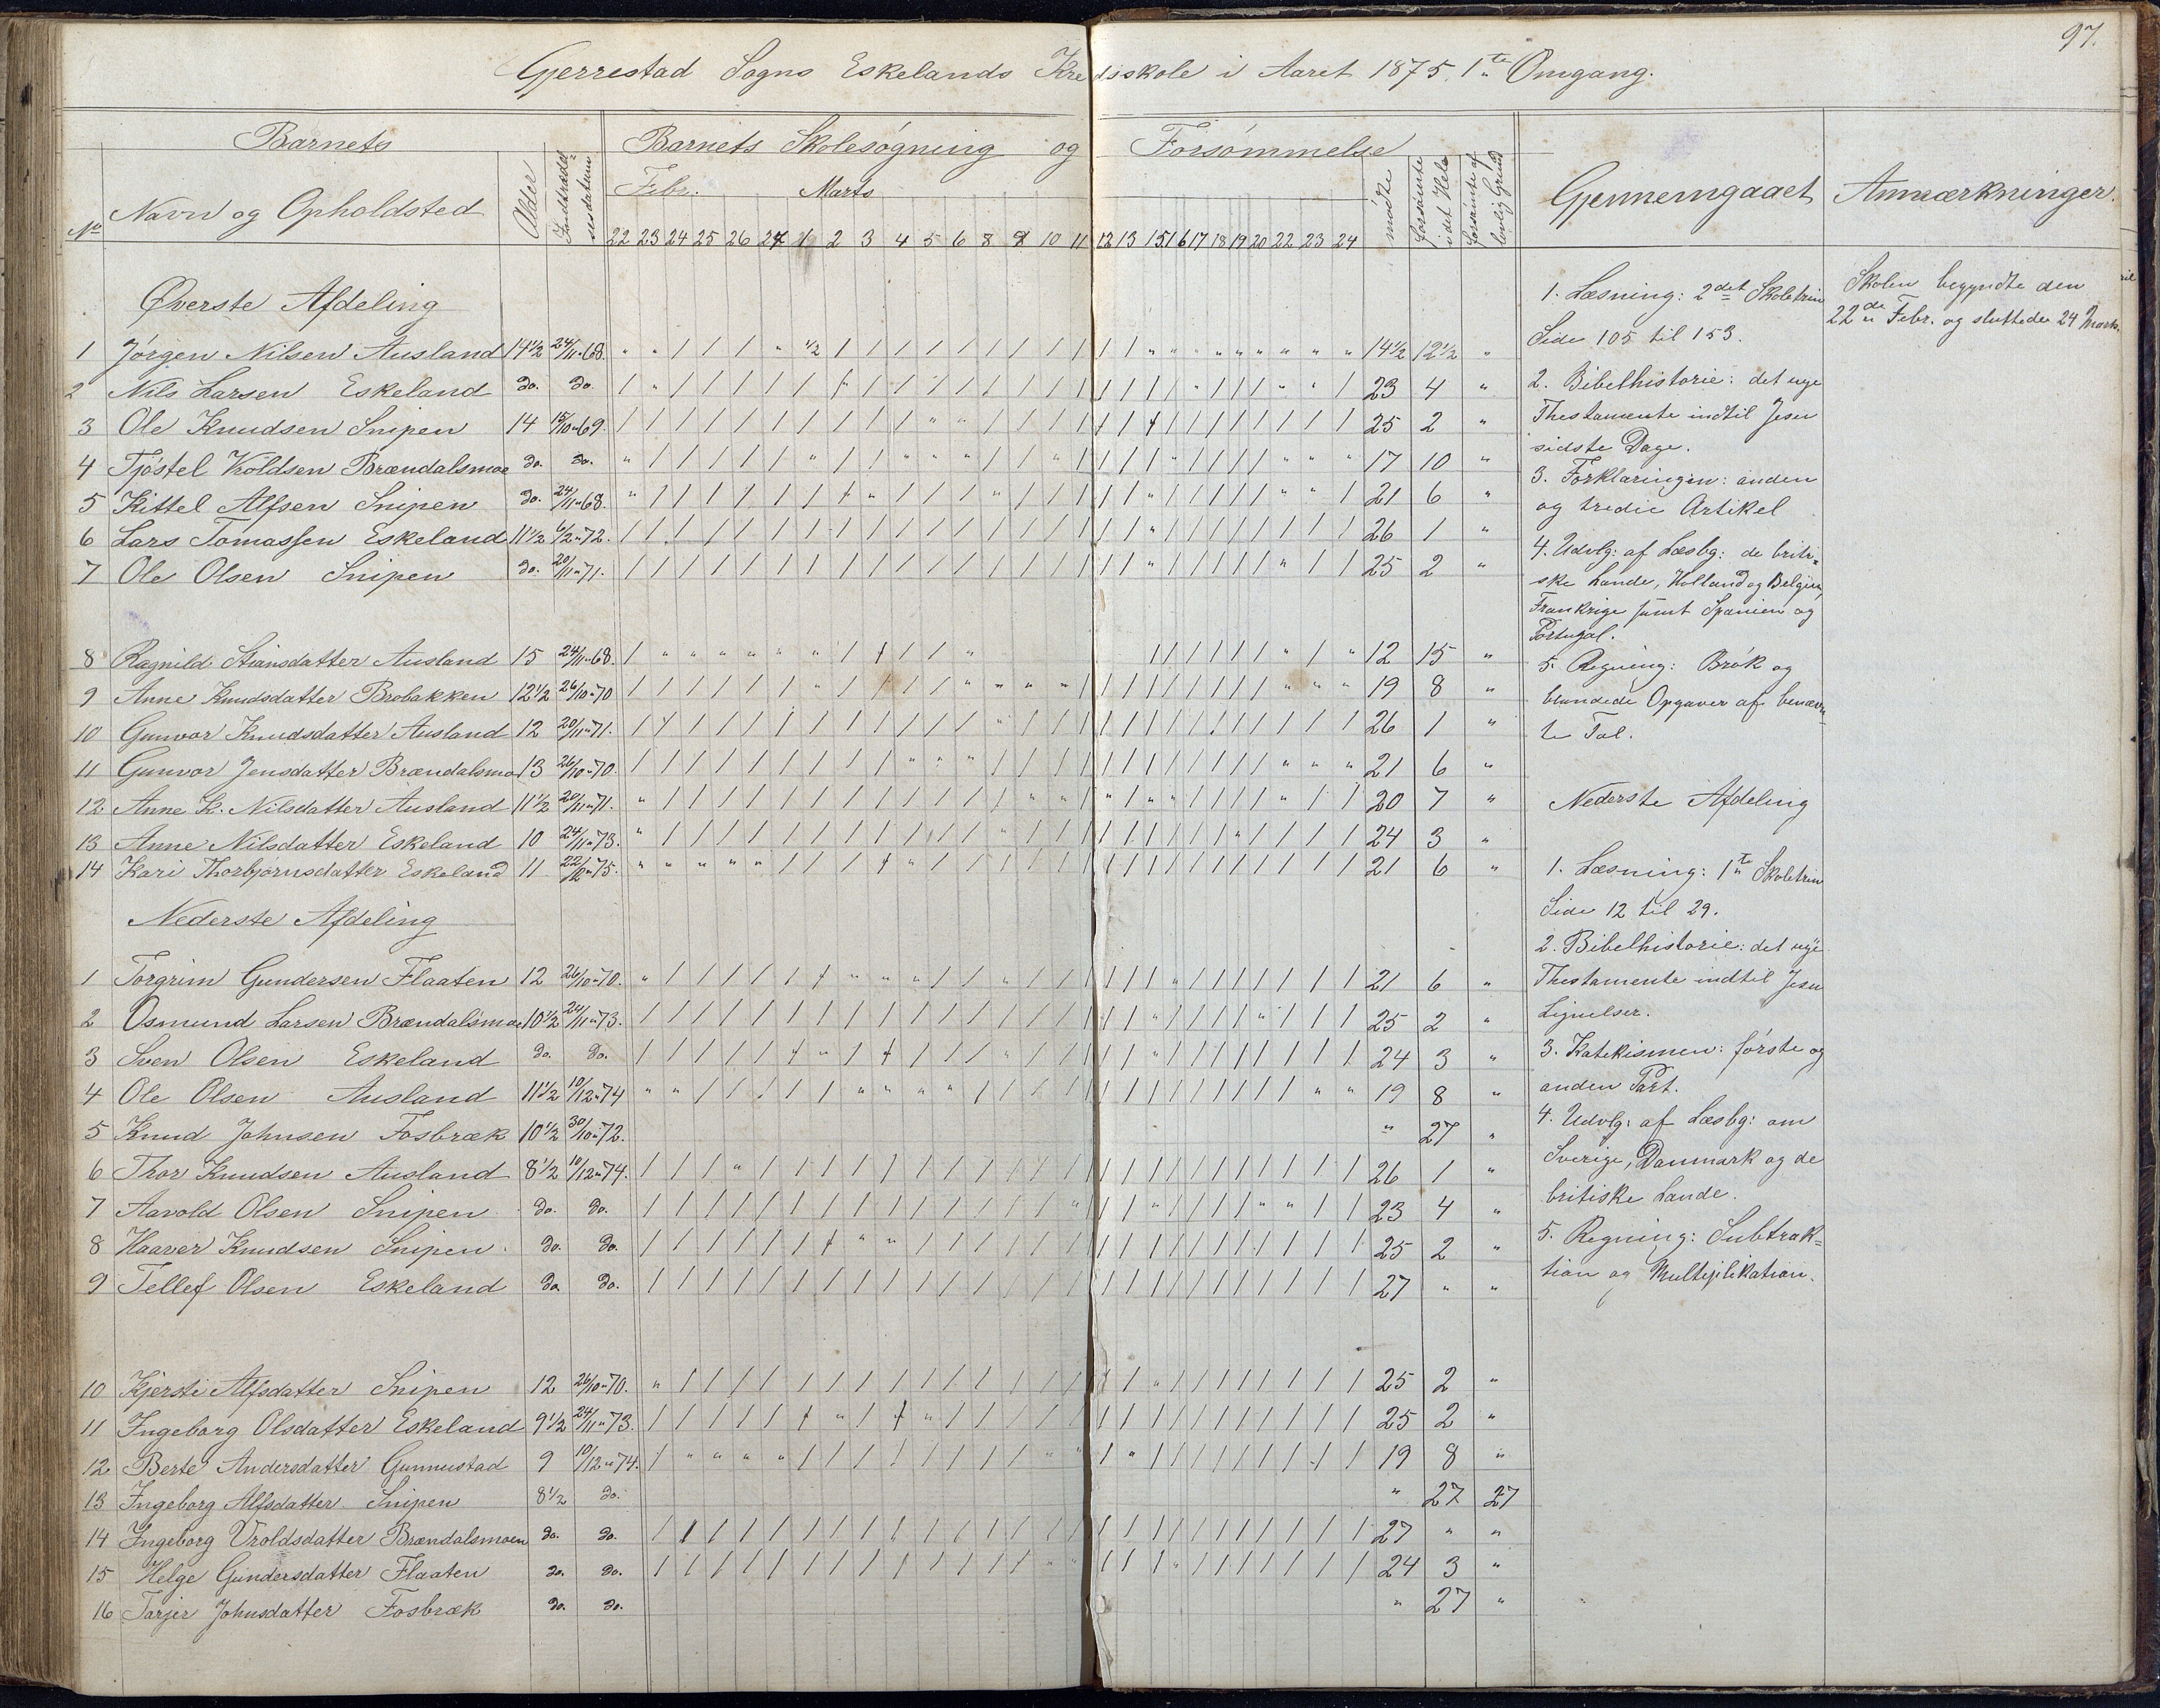 97.
Gjerrestad Sogns Eskelands Kredsskole i Aaret 1875. 1te Omgang.
Barnets
Barnets Skolesøgning og Forsømmelse
Gjennemgaaet
Anmærkninger.
No Navn og Opholdsted Alder Indtrædelsesdatum Febr. Marts mødte forsømte i det Hele forsømte af lovlig Grund
22 23 24 25 26 27 1 2 3 4 5 6 8 9 10 11 12 13 15 16 17 18 19 20 22 23 24
Øverste Afdeling
1 Jørgen Nilsen Ausland 14 1/2 24/11 " 68. 14 1/2 12 1/2 "
2 Nils Larsen Eskeland do. do. 23 4 "
3 Ole Knudsen Snipen 14 15/10 " 69. 25 2 "
4 Tjøstel Vroldsen Brændalsmoe do. do. 17 10 "
5 Kittel Alfsen Snipen do. 24/11 " 68. 21 6 "
6 Lars Tomassen Eskeland 11 1/2 6/2 " 72. 26 1 "
7 Ole Olsen Snipen do. 20/11 " 71. 25 2 "
8 Ragnild Stiansdatter Ausland 15 24/11 " 68. 12 15 "
9 Anne Knudsdatter Brobakken 12 1/2 26/10 " 70 19 8 "
10 Gunvor Knudsdatter Ausland 12 20/11 " 71. 26 1 "
11 Gunvor Jensdatter Brændalsmo 13 26/10 " 70. 21 6 "
12 Anne K. Nilsdatter Ausland 11 1/2 20/11 " 71. 20 7 "
13 Anne Nilsdatter Eskeland 10 24/11 " 73. 24 3 "
14 Kari Thorbjørnsdatter Eskeland 11 22/2 " 75. 21 6 "
Nederste Afdeling
1 Torgrim Gundersen Flaaten 12 26/10 " 70. 21 6 "
2 Osmund Larsen Brændalsmoe 10 1/2 24/11 " 73. 25 2 "
3 Sven Olsen Eskeland do. do. 24 3 "
4 Ole Olsen Ausland 11 1/2 10/12 " 74 19 8 "
5 Knud Johnsen Fosbræk 10 1/2 30/10 " 72. " 27 "
6 Thor Knudsen Ausland 8 1/2 10/12 " 74. 26 1 "
7 Aavold Olsen Snipen do. do. 23 4 "
8 Haaver Knudsen Snipen. do. do. 25 2 "
9 Tellef Olsen Eskeland do. do. 27 " "
10 Kjersti Alfsdatter Snipen 12 26/10 " 70. 25 2 "
11 Ingeborg Olsdatter Eskeland 9 1/2 24/11 " 73. 25 2 "
12 Berte Andersdatter Gunnustad 9 10/12 " 74. 19 8 "
13 Ingeborg Alfsdatter Snipen 8 1/2 do. " 27 27
14 Ingeborg Vroldsdatter Brændalsmoen do. do. 27 " "
15 Helge Gundersdatter Flaaten do. do. 24 3 "
16 Tarjer Johnsdatter Fosbræk do. do. " 27 "
1. Læsning: 2det Skoletrin
Side 105 til 153.
2. Bibelhistorie: det nye
Thestamente indtil Jesu
sidste Dage.
3. Forklaringen: anden
og tredie Artikel
4. Udvlg: af Læsbg: de briti-
ske Lande, Holland og Belgien,
Frankrige samt Spanien og
Portugal.
5. Regning: Brøk og
blandede Opgaver af benævn-
te Tal.
Nederste Afdeling
1. Læsning: 1te Skoletrin
Side 12 til 29.
2. Bibelhistorie: det nye
Thestamente indtil Jesu
Lignelser.
3. Katekismen: første og
anden Part.
4. Udvlg: af Læsbg: om
Sverige, Danmark og de
britiske Lande.
5. Regning: Subtrak-
tion og Multiplikation.
Skolen begyndte den
22de Febr. og sluttede 24 Marts.